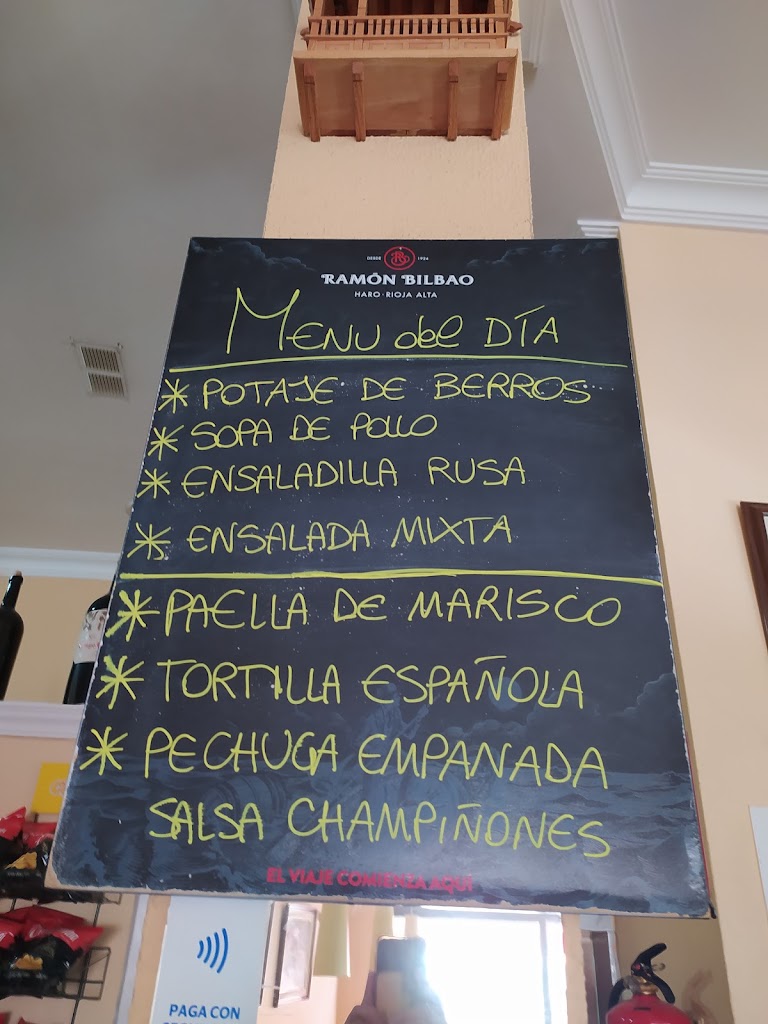 DESDE 1924
RAMÓN BILBAO
HARO · RIOJA ALTA
MENU del DÍA
* POTAJE DE BERROS
* SOPA DE POLLO
* ENSALADILLA RUSA
* ENSALADA MIXTA
* PAELLA DE MARISCO
* TORTILLA ESPAÑOLA
* PECHUGA EMPANADA
SALSA CHAMPIÑONES
EL VIAJE COMIENZA AQUÍ
PAGA CON